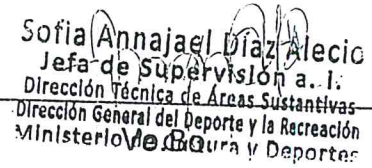 Sofia Annajael Díaz Alecio
Jefa de Supervisión a. I.
Dirección Técnica de Áreas Sustantivas
Dirección General del Deporte y la Recreación
Ministerio de Cultura y Deportes
Vo. Bo.